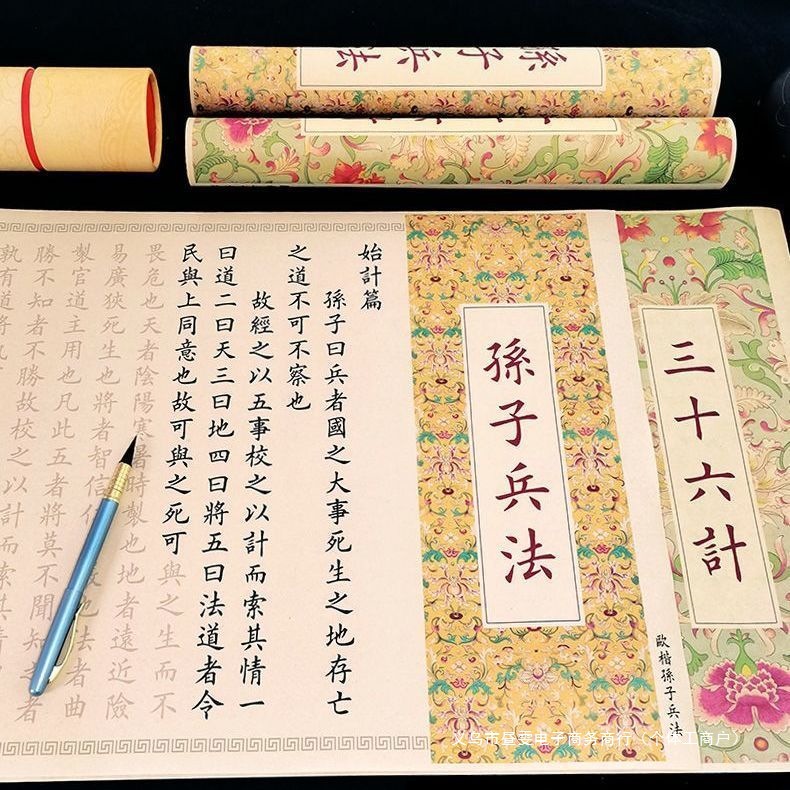 孫子兵法
三十六計
歐楷孫子兵法
孫子兵法
始計篇
孫子曰兵者國之大事死生之地存亡
之道不可不察也
故經之以五事校之以計而索其情一
曰道二曰天三曰地四曰將五曰法道者令
民與上同意也故可與之死可與之生而不
畏危也天者陰陽寒暑時製也地者遠近險
易廣狹死生也將者智信也法者曲
製官道主用也凡此五者將莫不聞知之者
勝不知者不勝故校之以計而索其情
孰有道將孰
义乌市昼雯电子商务商行（个体工商户）